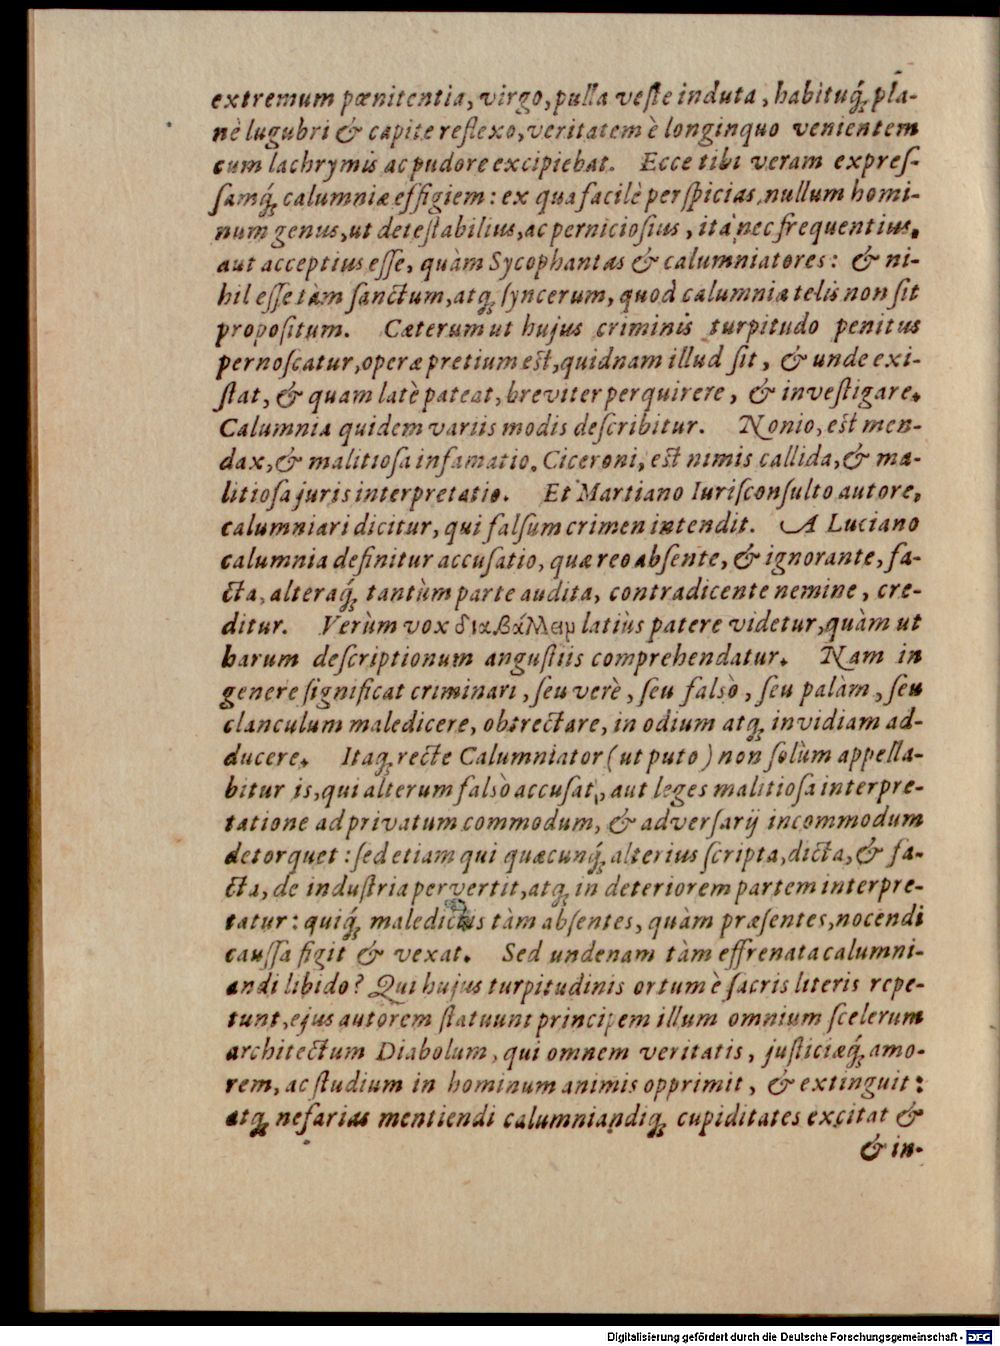 extremum pœnitentia, virgo, pulla veſte induta, habituq́; pla-
nè lugubri & capite reflexo, veritatem è longinquo venientem
cum lachrymis ac pudore excipiebat. Ecce tibi veram expreſ-
ſamq́; calumniæ effigiem: ex qua facilè perſpicias, nullum homi-
num genus, ut deteſtabilius, ac perniciosius, ità nec frequentius,
aut acceptius eſſe, quàm Sycophantas & calumniatores: & ni-
hil eſſe tàm ſanctum, atq; ſyncerum, quod calumniæ telis non ſit
propoſitum. Cæterum ut hujus criminis turpitudo penitus
pernoſcatur, operæ pretium est, quidnam illud ſit, & unde exi-
ſtat, & quam latè pateat, breviter perquirere, & inveſtigare.
Calumnia quidem variis modis deſcribitur. Nonio, est men-
dax, & malitioſa infamatio. Ciceroni, est nimis callida, & ma-
litioſa juris interpretatio. Et Martiano Iuriſconſulto autore,
calumniari dicitur, qui falſum crimen intendit. A Luciano
calumnia definitur accuſatio, quæ reo abſente, & ignorante, fa-
cta, alteraq́; tantùm parte audita, contradicente nemine, cre-
ditur. Verùm vox διαβάλλειν latiùs patere videtur, quàm ut
harum deſcriptionum anguſtiis comprehendatur. Nam in
genere ſignificat criminari, ſeu verè, ſeu falsò, ſeu palàm, ſeu
clanculum maledicere, obtrectare, in odium atq; invidiam ad-
ducere. Itaq; recte Calumniator (ut puto) non ſolùm appella-
bitur is, qui alterum falsò accuſat, aut leges malitioſa interpre-
tatione ad privatum commodum, & adverſarij incommodum
detorquet: ſed etiam qui quæcunq́; alterius ſcripta, dicta, & fa-
cta, de induſtria pervertit, atq; in deteriorem partem interpre-
tatur: quiq́; maledictis tàm abſentes, quàm præſentes, nocendi
cauſſa figit & vexat. Sed undenam tàm effrenata calumni-
andi libido? Qui hujus turpitudinis ortum è ſacris literis repe-
tunt, ejus autorem ſtatuunt principem illum omnium ſcelerum
architectum Diabolum, qui omnem veritatis, juſticiæq́; amo-
rem, ac ſtudium in hominum animis opprimit, & extinguit:
atq; nefarias mentiendi calumniandiq; cupiditates excitat &
& in-
Digitalisierung gefördert durch die Deutsche Forschungsgemeinschaft - DFG